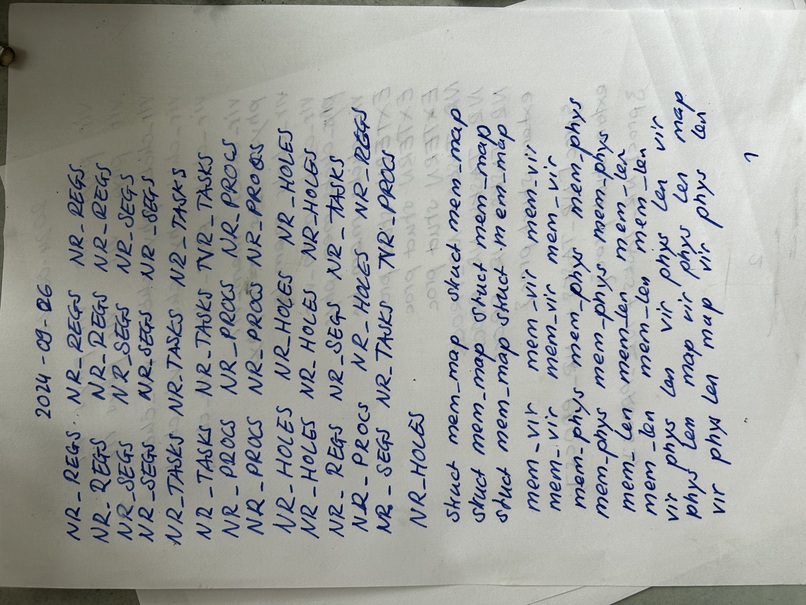 2024-09-26
NR_REGS NR_REGS NR_REGS
NR_REGS NR_REGS NR_REGS
NR_SEGS NR_SEGS NR_SEGS
NR_SEGS NR_SEGS NR_SEGS
NR_TASKS NR_TASKS NR_TASKS
NR_TASKS NR_TASKS NR_TASKS
NR_PROCS NR_PROCS NR_PROCS
NR_PROCS NR_PROCS NR_PROCS
NR_HOLES NR_HOLES NR_HOLES
NR_HOLES NR_HOLES NR_HOLES
NR_REGS NR_SEGS NR_TASKS
NR_PROCS NR_HOLES NR_REGS
NR_SEGS NR_TASKS NR_PROCS
NR_HOLES
struct mem_map struct mem_map
struct mem_map struct mem_map
struct mem_map struct mem_map
mem_vir mem_vir mem_vir
mem_vir mem_vir mem_vir
mem_phys mem_phys mem_phys
mem_phys mem_phys mem_phys
mem_len mem_len mem_len
mem_len mem_len mem_len
vir phys len vir phys len vir
phys len map vir phys len map
vir phys len map vir phys len
1